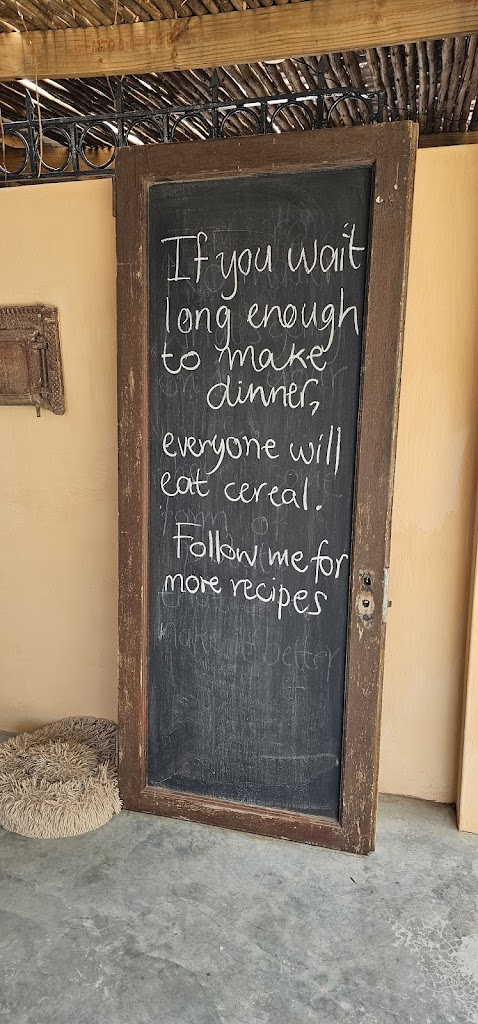 If you wait
long enough
to make
dinner,
everyone will
eat cereal.
Follow me for
more recipes
make it better